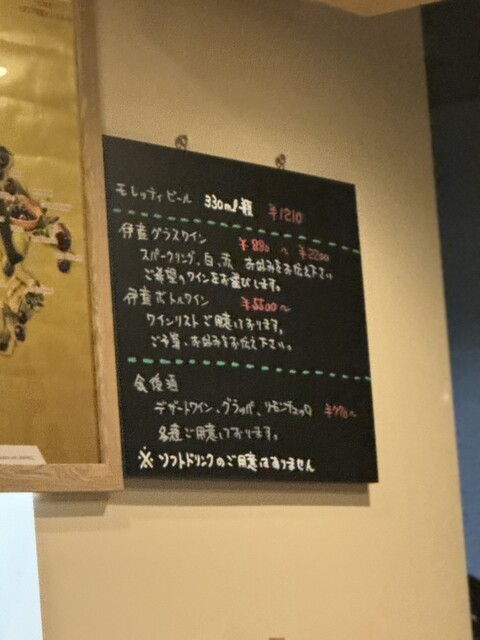 モレッティビール 330ml瓶 ¥1210
伊産グラスワイン ¥880〜¥2200
スパークリング、白、赤、お好みをお伝え下さい
ご希望のワインをお選びします。
伊産ボトルワイン ¥5500〜
ワインリストご用意しております。
ご予算、お好みをお伝え下さい。
食後酒
デザートワイン、グラッパ、リモンチェッロ
各種ご用意しております。
※ソフトドリンクのご用意はありません